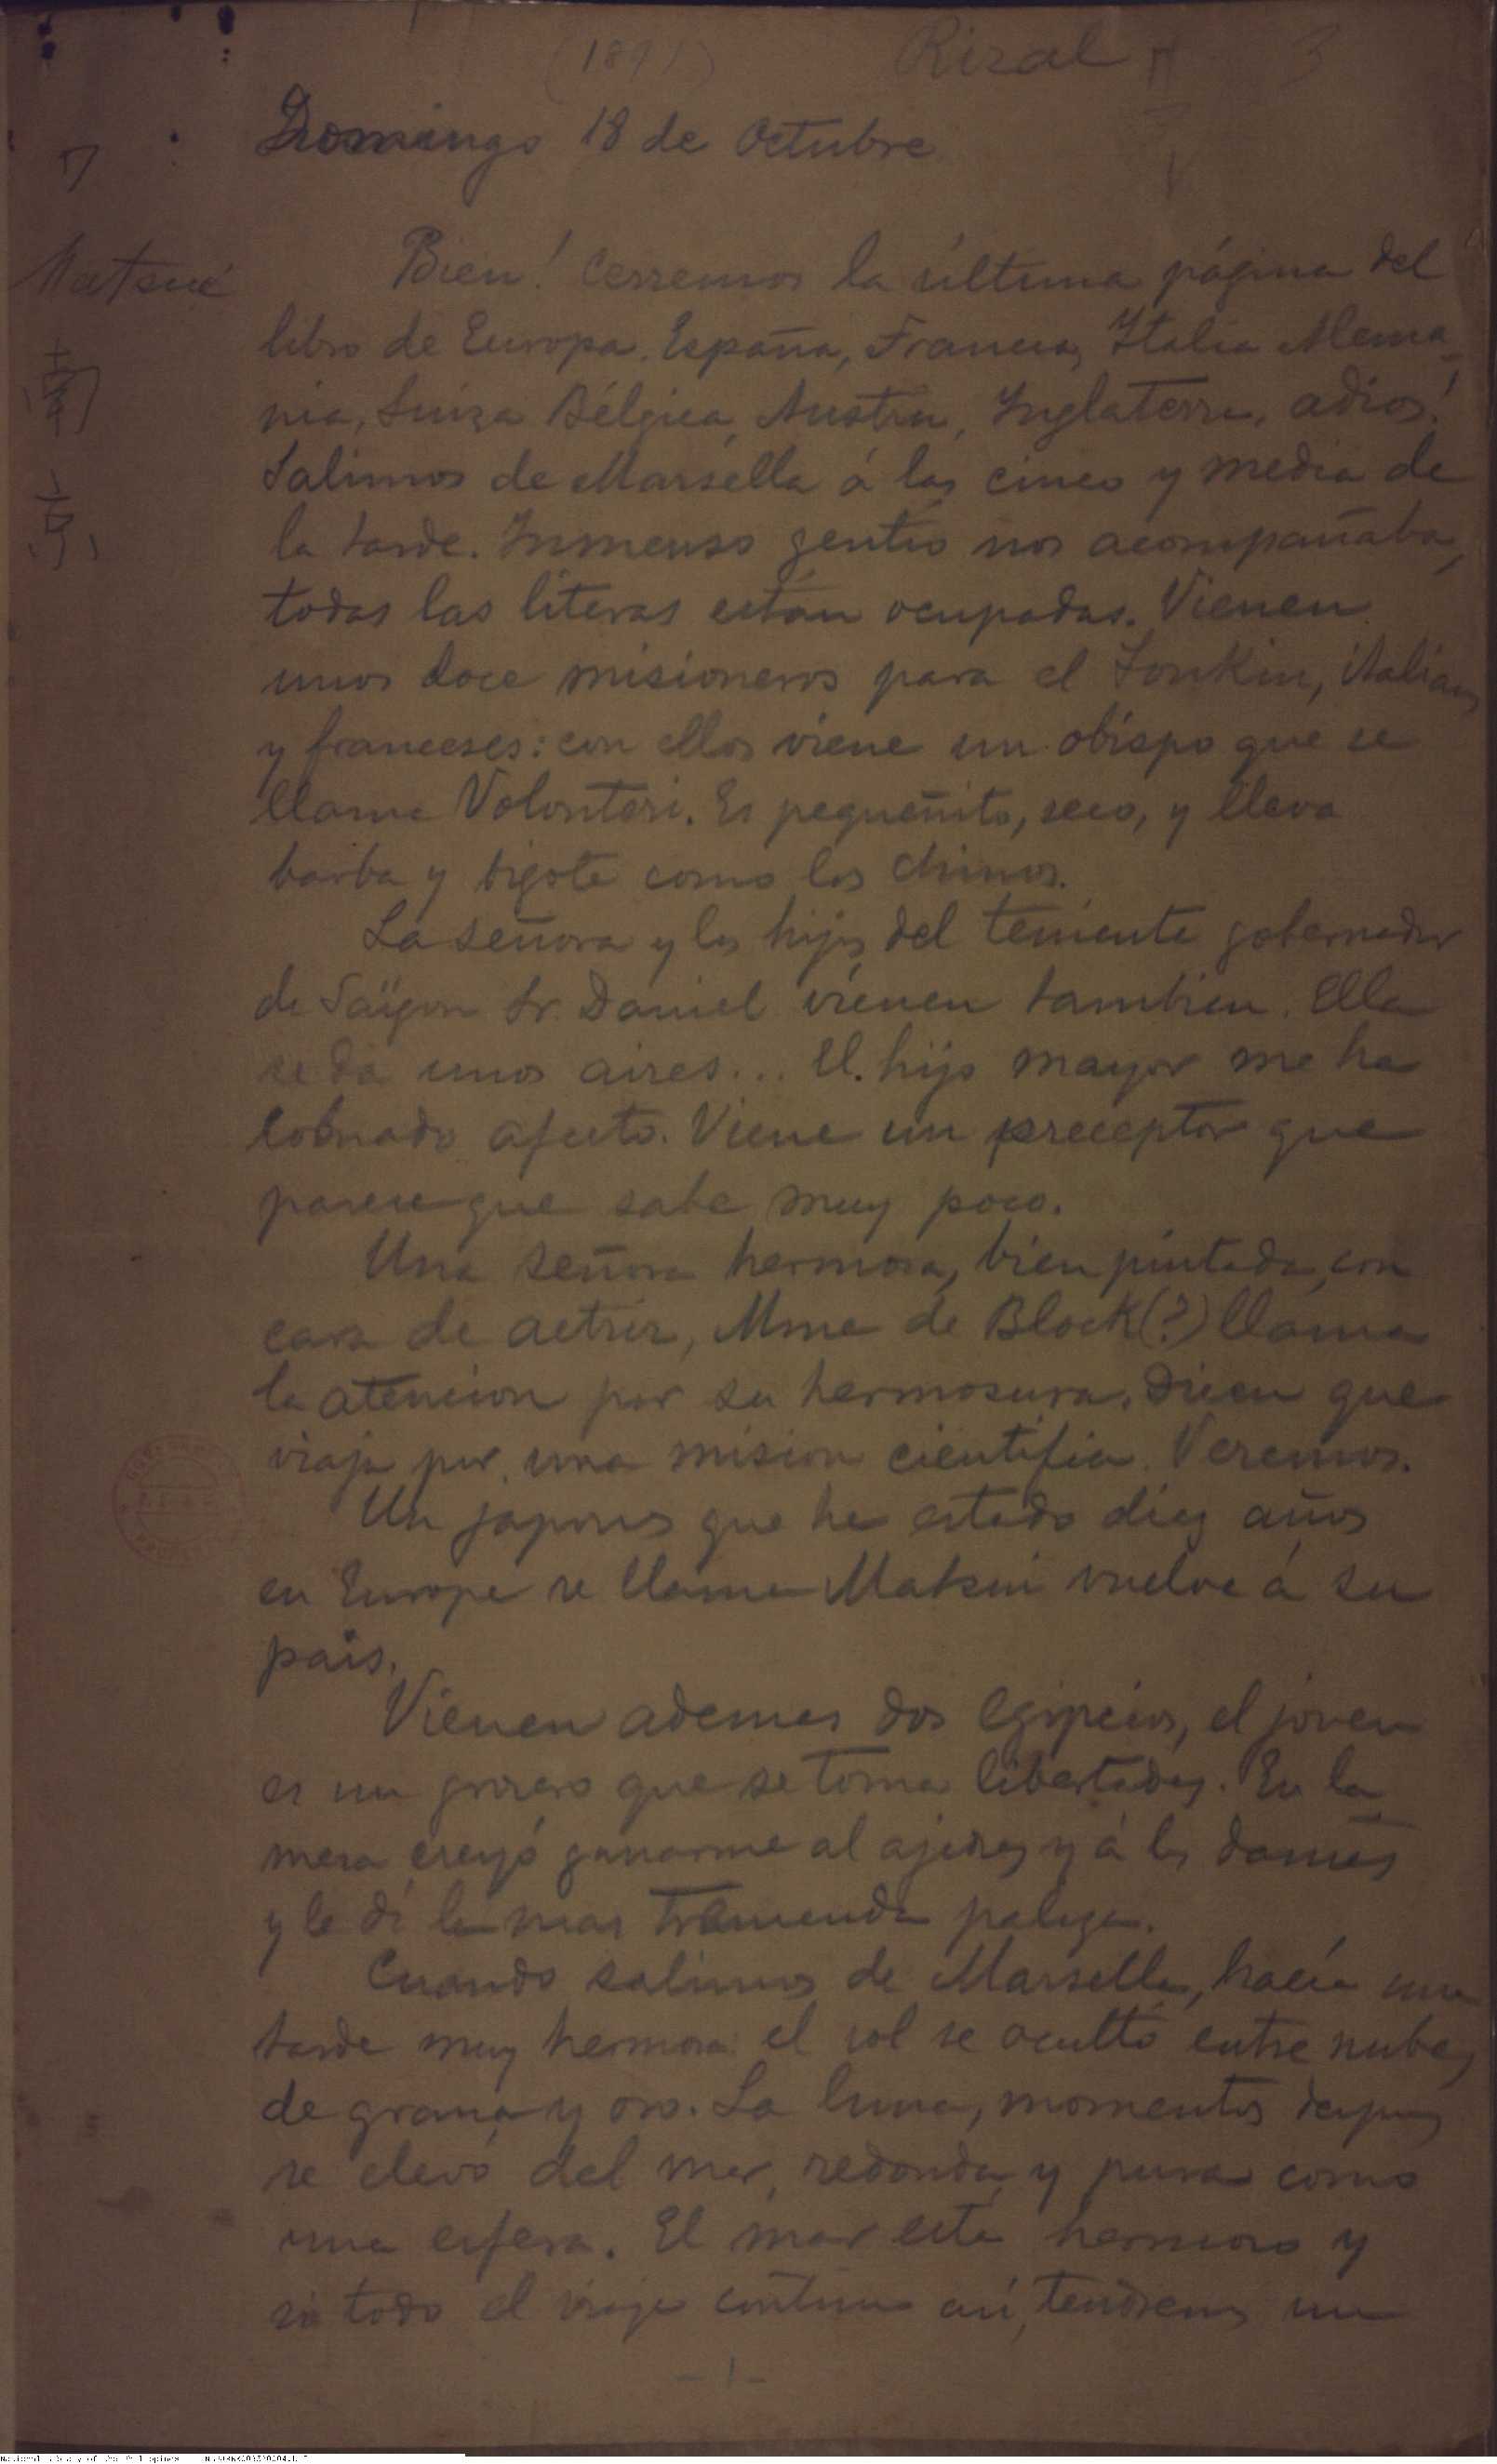 (1891) Rizal 3
Domingo 18 de Octubre
Bien! Cerremos la última página del
libro de Europa. España, Francia, Italia Alema-
nia, Suiza Bélgica, Austria, Inglaterra, adios!
Salimos de Marsella á las cinco y media de
la tarde. Inmenso gentío nos acompañaba,
todas las literas están ocupadas. Vienen
unos doce misioneros para el Tonkin, italianos
y franceses: con ellos viene un obispo que se
llama Volonteri. Es pequeñito, seco, y lleva
barba y bigote como los chinos.
La señora y los hijos del teniente gobernador
de Saïgon Sr. Daniel vienen tambien. Ella
se da unos aires... El hijo mayor me ha
cobrado afecto. Viene un preceptor que
parece que sabe muy poco.
Una señora hermosa, bien pintada, con
cara de actriz, Mme de Block(?) llama
la atencion por su hermosura. Dicen que
viaja por una mision cientifica. Veremos.
Un japones que ha estado diez años
en Europa se llama Matsui vuelve á su
pais.
Vienen ademas dos egipcios, el joven
es un grosero que se toma libertades. En la
mesa creyó ganarme al ajedrez y á las damas
y le di la mas tremenda paliza.
Cuando salimos de Marsella, hacía una
tarde muy hermosa: el sol se ocultó entre nubes
de grana y oro. La luna, momentos despues
se elevó del mar, redonda y pura como
una esfera. El mar está hermoso y
si todo el viaje continua así, tendremos un
-1-
南
京